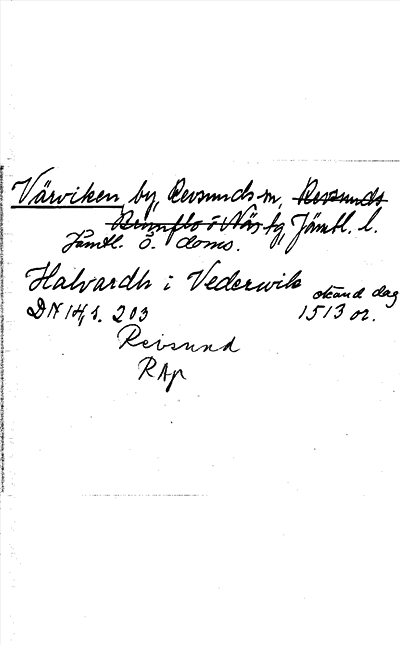 Värviken by, Revsunds sn, Revsunds
Brunflo o Näs tg, Jämtl. l.
Jämtl. ö. doms.
Halvardh i Vederwik
okänd dag
DN 14, s. 203
1513 or.
Revsund
RAp